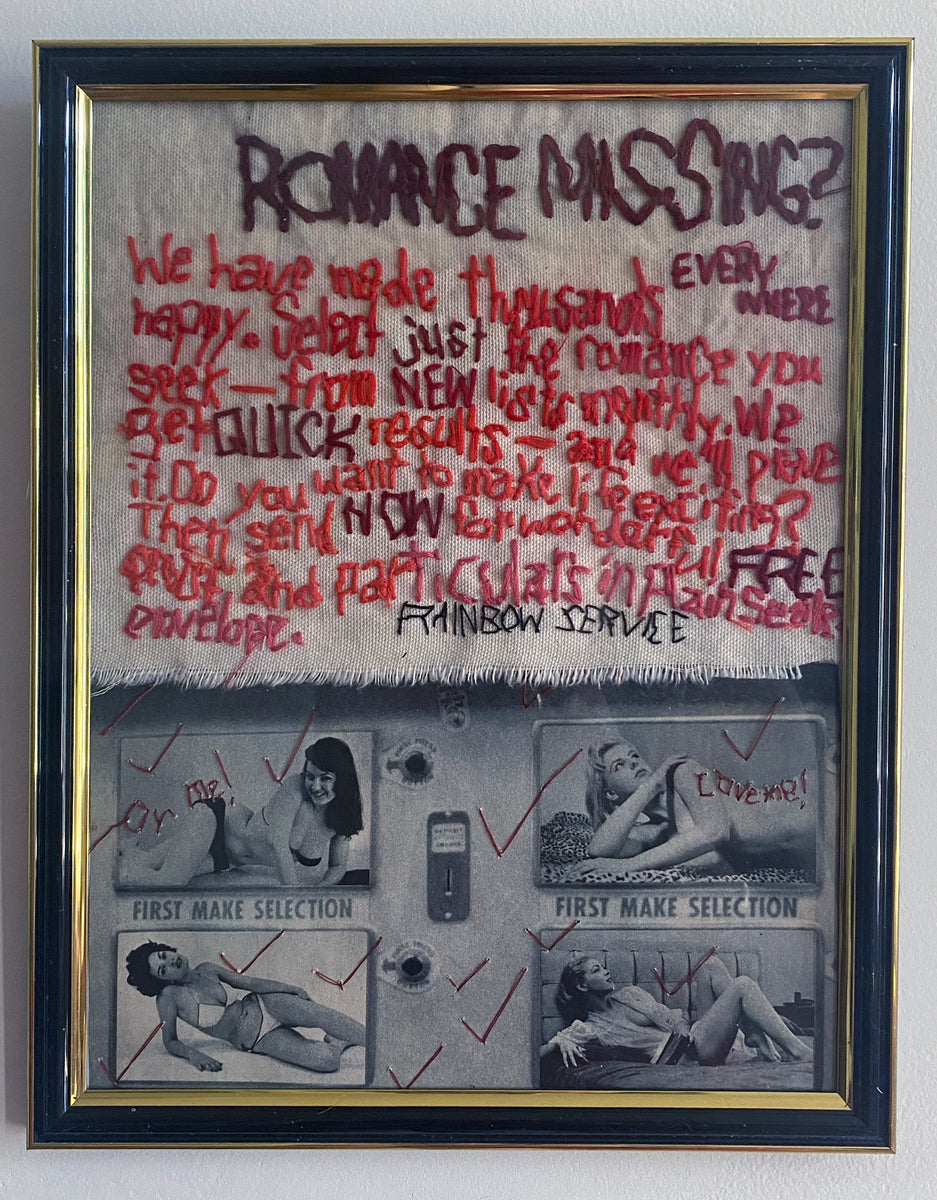 ROMANCE MISSING?
We have made thousands EVERY WHERE
happy. Select just the romance you
seek — from NEW lists monthly. We
get QUICK results — and we'll prove
it. Do you want to make life exciting?
Then send NOW for wonderful FREE
and particulars in plain sealed
envelope. RAINBOW SERVICE
or me!
Love me!
DEPOSIT
FIRST MAKE SELECTION
FIRST MAKE SELECTION